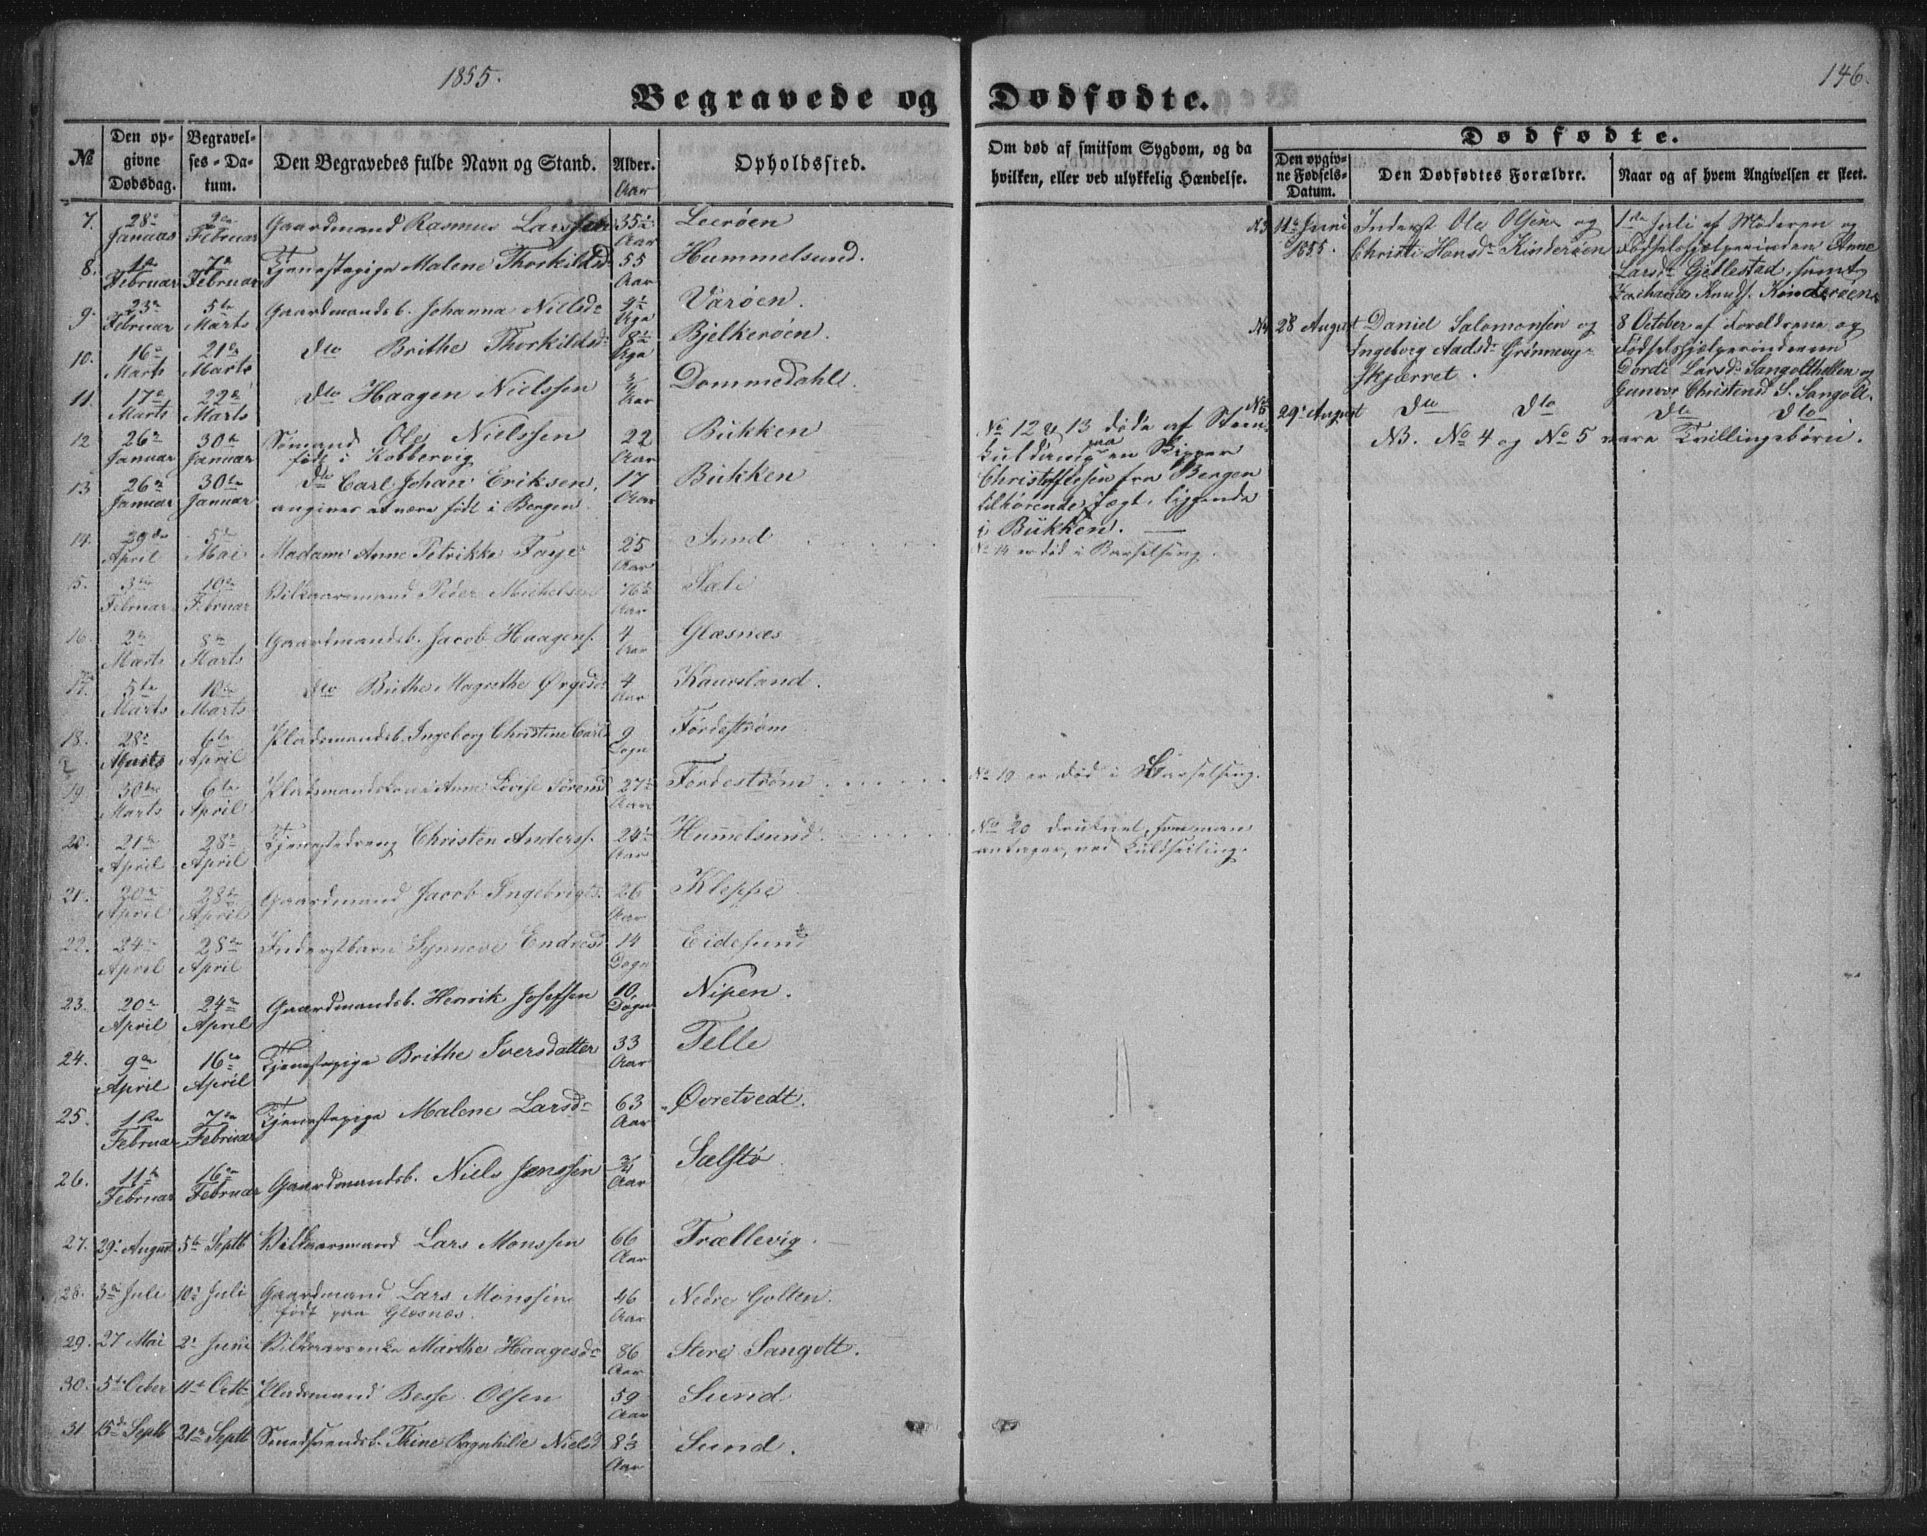 1855.
146.
Begravede og Dødfødte.
№
Den opgivne Dødsdag.
Begravelses-Datum.
Den Begravedes fulde Navn og Stand.
Alder. Aar
Opholdssted.
Om død af smitsom Sygdom, og da hvilken, eller ved ulykkelig Hændelse.
Dødfødte.
Den opgivne Fødsels-Datum.
Den Dødfødtes Forældre.
Naar og af hvem Angivelsen er skeet.
7. 28de Januar 2den Februar Gaardmand Rasmus Larssen 35½ Aar Leerøen
8. 1ste Februar 7de Februar Tjenestepige Malene Thorkildsd. 55 Aar Hummelsund.
9. 23de Februar 5te Marts Gaardmandsb. Johanna Nielsd. Uga Varøen.
10. 16de Marts 21de Marts dto Brithe Thorkildsd. 8½ Uga Bjelkerøen
11. 17de Marts 22de Marts dto Haagen Nielssen Aar Dommedahl.
12 26de Januar 30te Januar Sømand Ole Nielssen 22 Aar Bukken
født i Kobbervig
13 26de Januar 30te Januar dto Carl Johan Eriksen. 17 Aar Bukken
angives at være født i Bergen.
14. 29de April 5te Mai Madame Anne Petrikke Faye 25 Aar Sund
15. 3die Februar 10de Februar Vilkaarsmand Peder Michelsen 76½ Aar Sæle
16. 2den Marts 8de Marts Gaardmandsb. Jacob Haagens. 4 Aar Glæsnæs
17. 5te Marts 10de Marts dto Brithe Magrethe Ørgesd. 4 Aar Kausland.
18. 28de Marts 6te April Pladsmandsb. Ingeborg Christine Carlsd. 9 Dogn Førdestrøm
19 30te Marts 6te April Pladsmandskone Anne Lovise Sørensd. 27½ Aar Førdestrøm
20. 21de April 28de April Tjenestedreng Christen Anders. 24½ Aar Hummelsund
21. 20de April 28de April Gaardmand Jacob Ingebrigts. 26 Aar Kleppe
22. 24de April 28de April Inderstbarn Synneve Endresd. 14 Dogn Eidesund
23. 20de April 24de April Gaardmandsb. Henrik Josefsen 10 Døgn Nipen.
24. 9de April 16de April Tjenestepige Brithe Iversdatter 33 Aar Telle
25. 1ste Februar 7de Februar Tjenestepige Malene Larsd. 63 Aar Øvretvedt.
26. 11te Februar 16de Februar Gaardmandsb. Niels Jenssen Aar Sælstø
27. 29de August 5te Septb Vilkaarsmand Lars Monssen 66 Aar Trællevig.
28. 3die Juli 10de Juli Gaardmand Lars Monssen 46 Aar Nedre Golten.
født paa Glesnæs.
29. 27 Mai 2den Juni Vilkaarsenke Marthe Haagesd. 86 Aar Store Sangolt.
30. 5te Octber 11te Octb Pladsmand Besse Olsen 59 Aar Sund.
31. 15de Septb 21de Septb Smedsvendsb. Thine Ragnhilde Nielsd. 8½ Aar Sund.
No 12 & 13 døde af Steenkuldamp paa en Skipper
Christoffersen fra Bergen
tilhørende Jægt, liggende
i Bukken.
No 14 er død i Barselseng.
No 19 er død i Barselseng.
No 20 druknet, som man
antager, ved Kuldseiling.
No 3 11te Juni 1855. Inderst Ole Olsen og
Christi Hansd. Kinderøen
1ste Juli af Moderen og
Fødselshjælperinden Anne
Larsd. Gjellestad, samt
Zacharias Knuds. Kinderøen
No 4 28 August Daniel Salomonsen og
Ingeborg Aadsd. Grønnevig-
skjærret.
8 October af Forældrene og
Fødselshjælperinderne
Dordi Larsd. Sangolthallen og
Gunvor Christensd. S. Sangolt.
No 5 29de August dto dto dto dto
NB. No 4 og No 5 vare Tvillingebørn.